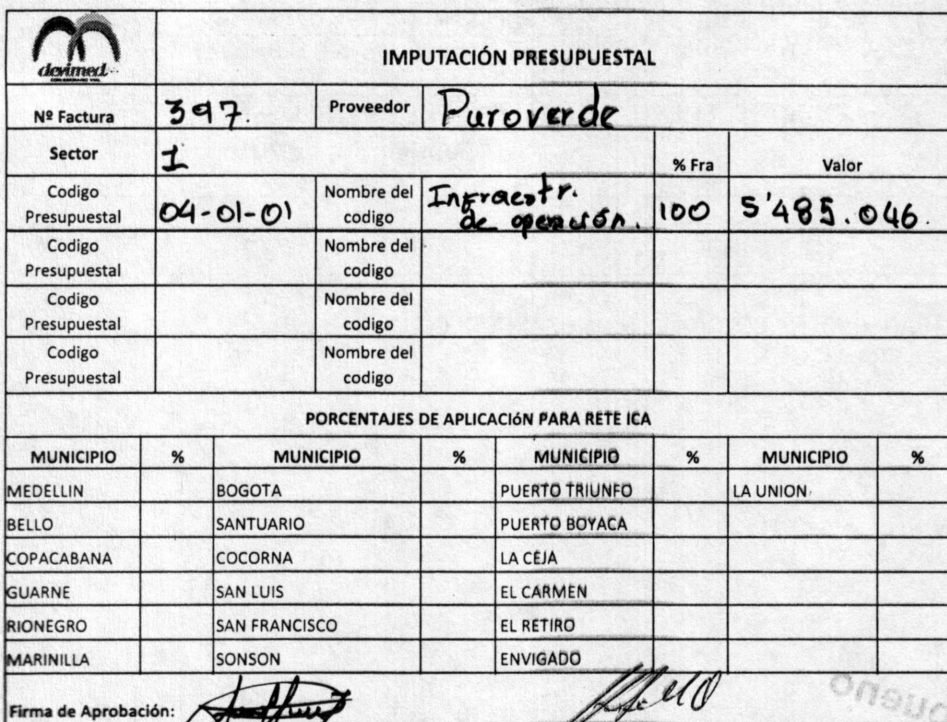 devimed
IMPUTACIÓN PRESUPUESTAL
Nº Factura 397. Proveedor Puroverde
Sector I % Fra Valor
Codigo Presupuestal 04-01-01 Nombre del codigo Infraestr. de operación. 100 5'485.046.
Codigo Presupuestal Nombre del codigo
Codigo Presupuestal Nombre del codigo
Codigo Presupuestal Nombre del codigo
PORCENTAJES DE APLICACIóN PARA RETE ICA
MUNICIPIO % MUNICIPIO % MUNICIPIO % MUNICIPIO %
MEDELLIN BOGOTA PUERTO TRIUNFO LA UNION
BELLO SANTUARIO PUERTO BOYACA
COPACABANA COCORNA LA CEJA
GUARNE SAN LUIS EL CARMEN
RIONEGRO SAN FRANCISCO EL RETIRO
MARINILLA SONSON ENVIGADO
Firma de Aprobación: